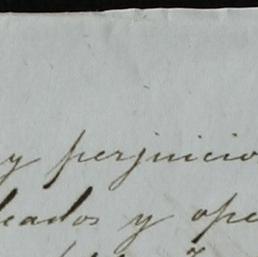 y perjuicio
leados y ope